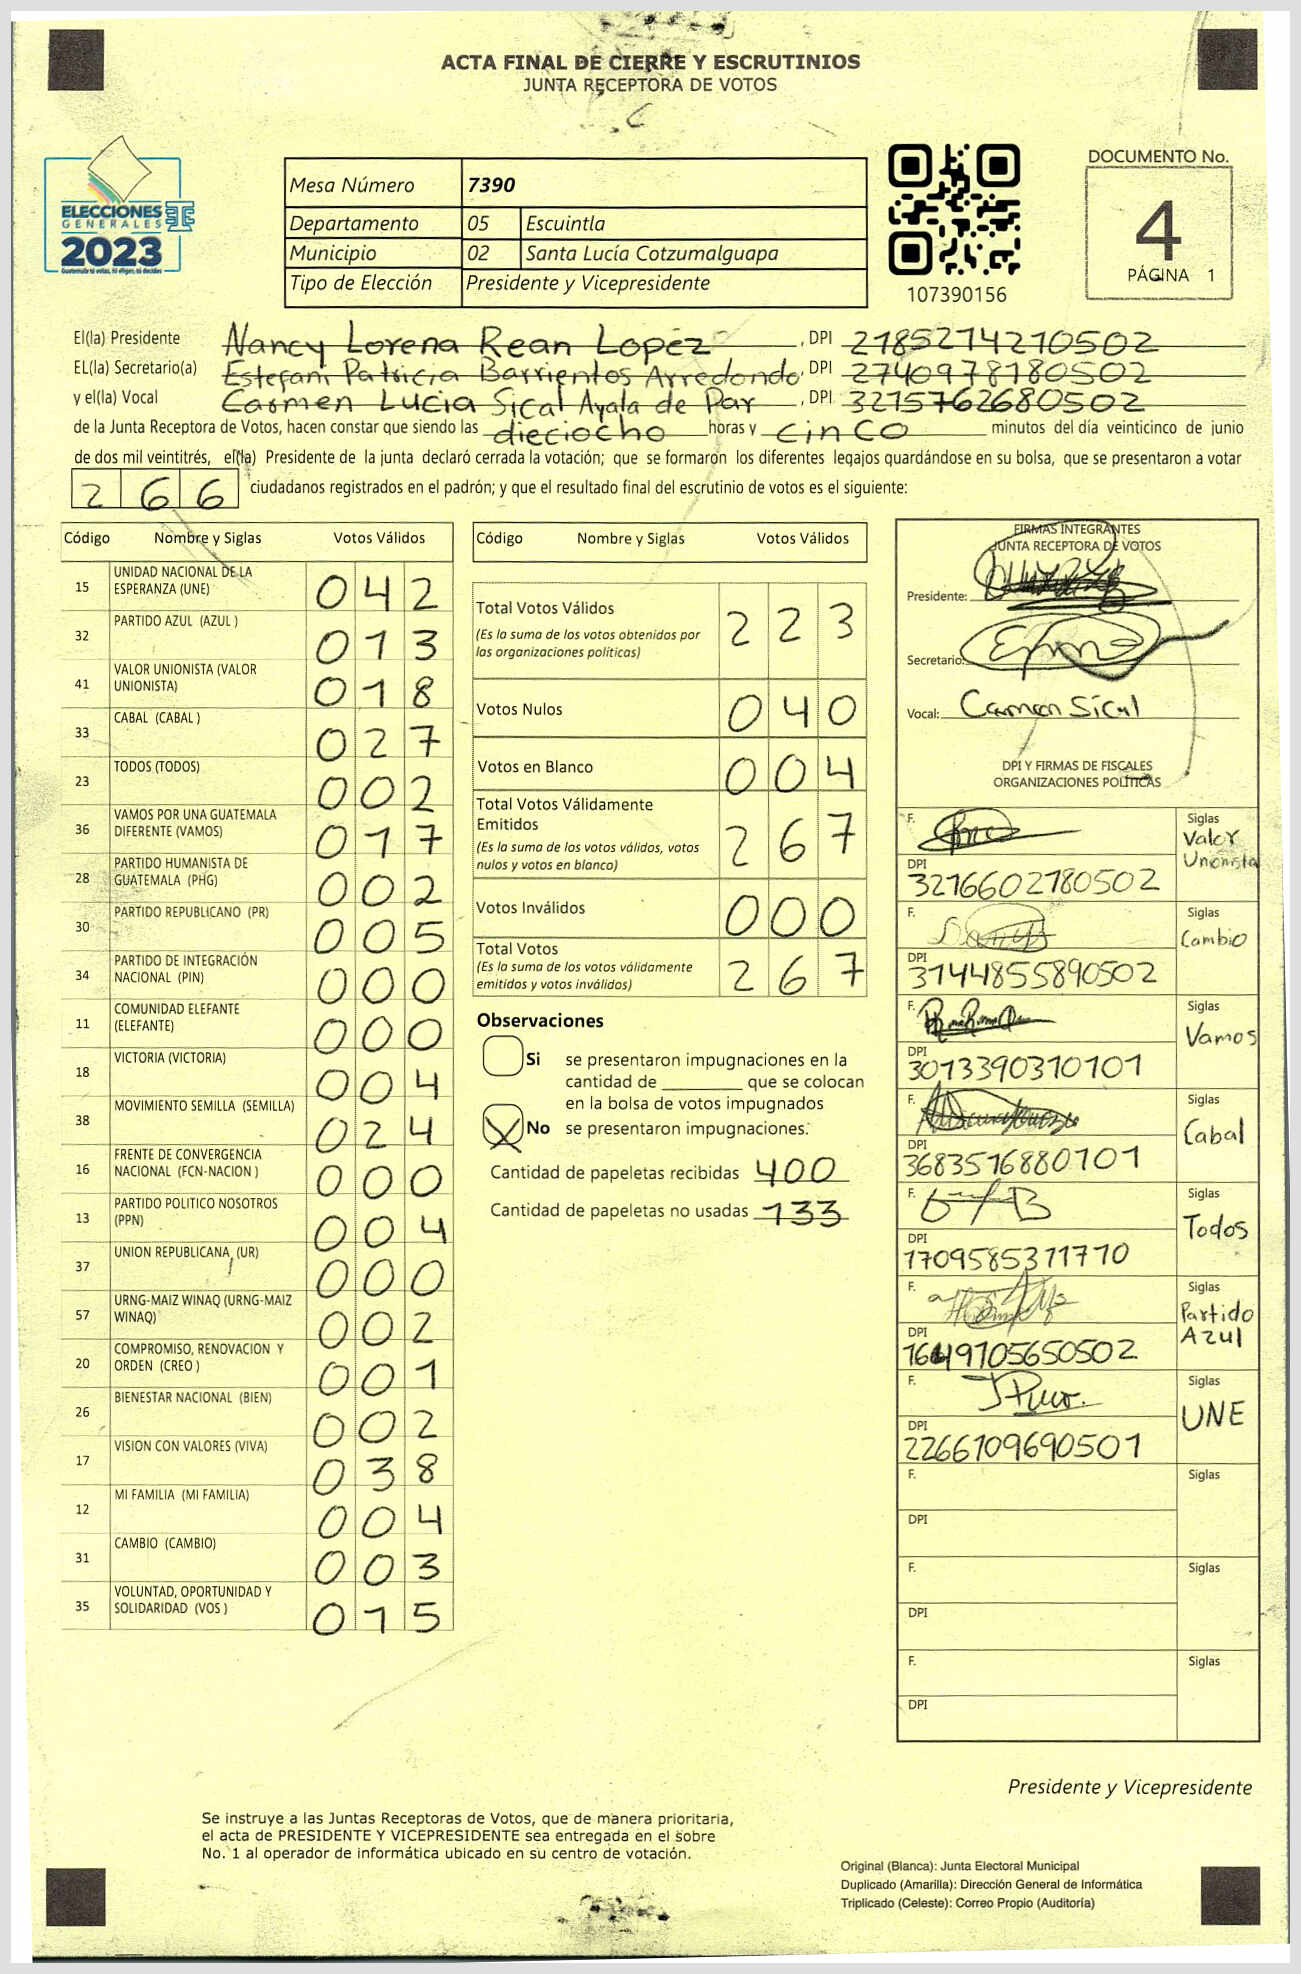 ACTA FINAL DE CIERRE Y ESCRUTINIOS
JUNTA RECEPTORA DE VOTOS
ELECCIONES
GENERALES
2023
Guatemala tú votas, tú eliges, tú decides
Mesa Número 7390
Departamento 05 Escuintla
Municipio 02 Santa Lucía Cotzumalguapa
Tipo de Elección Presidente y Vicepresidente
107390156
DOCUMENTO No.
4
PÁGINA 1
El(la) Presidente Nancy Lorena Rean Lopéz, DPI 2185214210502
EL(la) Secretario(a) Estefani Patricia Barrientos Arredondo, DPI 2740978180502
y el(la) Vocal Carmen Lucia Sical Ayala de Par, DPI 3215762680502
de la Junta Receptora de Votos, hacen constar que siendo las dieciocho horas y cinco minutos del día veinticinco de junio
de dos mil veintitrés, el(la) Presidente de la junta declaró cerrada la votación; que se formaron los diferentes legajos quardándose en su bolsa, que se presentaron a votar
266 ciudadanos registrados en el padrón; y que el resultado final del escrutinio de votos es el siguiente:
Código Nombre y Siglas Votos Válidos
15 UNIDAD NACIONAL DE LA ESPERANZA (UNE) 042
32 PARTIDO AZUL (AZUL ) 013
41 VALOR UNIONISTA (VALOR UNIONISTA) 018
33 CABAL (CABAL ) 027
23 TODOS (TODOS) 002
36 VAMOS POR UNA GUATEMALA DIFERENTE (VAMOS) 017
28 PARTIDO HUMANISTA DE GUATEMALA (PHG) 002
30 PARTIDO REPUBLICANO (PR) 005
34 PARTIDO DE INTEGRACIÓN NACIONAL (PIN) 000
11 COMUNIDAD ELEFANTE (ELEFANTE) 000
18 VICTORIA (VICTORIA) 004
38 MOVIMIENTO SEMILLA (SEMILLA) 024
16 FRENTE DE CONVERGENCIA NACIONAL (FCN-NACION ) 000
13 PARTIDO POLITICO NOSOTROS (PPN) 004
37 UNION REPUBLICANA (UR) 000
57 URNG-MAIZ WINAQ (URNG-MAIZ WINAQ) 002
20 COMPROMISO, RENOVACION Y ORDEN (CREO ) 001
26 BIENESTAR NACIONAL (BIEN) 002
17 VISION CON VALORES (VIVA) 038
12 MI FAMILIA (MI FAMILIA) 004
31 CAMBIO (CAMBIO) 003
35 VOLUNTAD, OPORTUNIDAD Y SOLIDARIDAD (VOS ) 015
Código Nombre y Siglas Votos Válidos
Total Votos Válidos 223
(Es la suma de los votos obtenidos por
las organizaciones políticas)
Votos Nulos 040
Votos en Blanco 004
Total Votos Válidamente
Emitidos 267
(Es la suma de los votos válidos, votos
nulos y votos en blanco)
Votos Inválidos 000
Total Votos 267
(Es la suma de los votos válidamente
emitidos y votos inválidos)
Observaciones
Si se presentaron impugnaciones en la
cantidad de ________ que se colocan
en la bolsa de votos impugnados
X No se presentaron impugnaciones.
Cantidad de papeletas recibidas 400
Cantidad de papeletas no usadas 133
FIRMAS INTEGRANTES
JUNTA RECEPTORA DE VOTOS
Presidente:
Secretario:
Vocal: Carmen Sical
DPI Y FIRMAS DE FISCALES
ORGANIZACIONES POLÍTICAS
F. Siglas Valor Unionista
DPI 3216602180502
F. Siglas Cambio
DPI 3144855890502
F. Siglas Vamos
DPI 3013390310101
F. Siglas Cabal
DPI 3683516880101
F. Siglas Todos
DPI 1709585371710
F. Siglas Partido Azul
DPI 1649105650502
F. Siglas UNE
DPI 2266109690501
F. Siglas
DPI
F. Siglas
DPI
F. Siglas
DPI
Presidente y Vicepresidente
Se instruye a las Juntas Receptoras de Votos, que de manera prioritaria,
el acta de PRESIDENTE Y VICEPRESIDENTE sea entregada en el sobre
No. 1 al operador de informática ubicado en su centro de votación.
Original (Blanca): Junta Electoral Municipal
Duplicado (Amarilla): Dirección General de Informática
Triplicado (Celeste): Correo Propio (Auditoría)